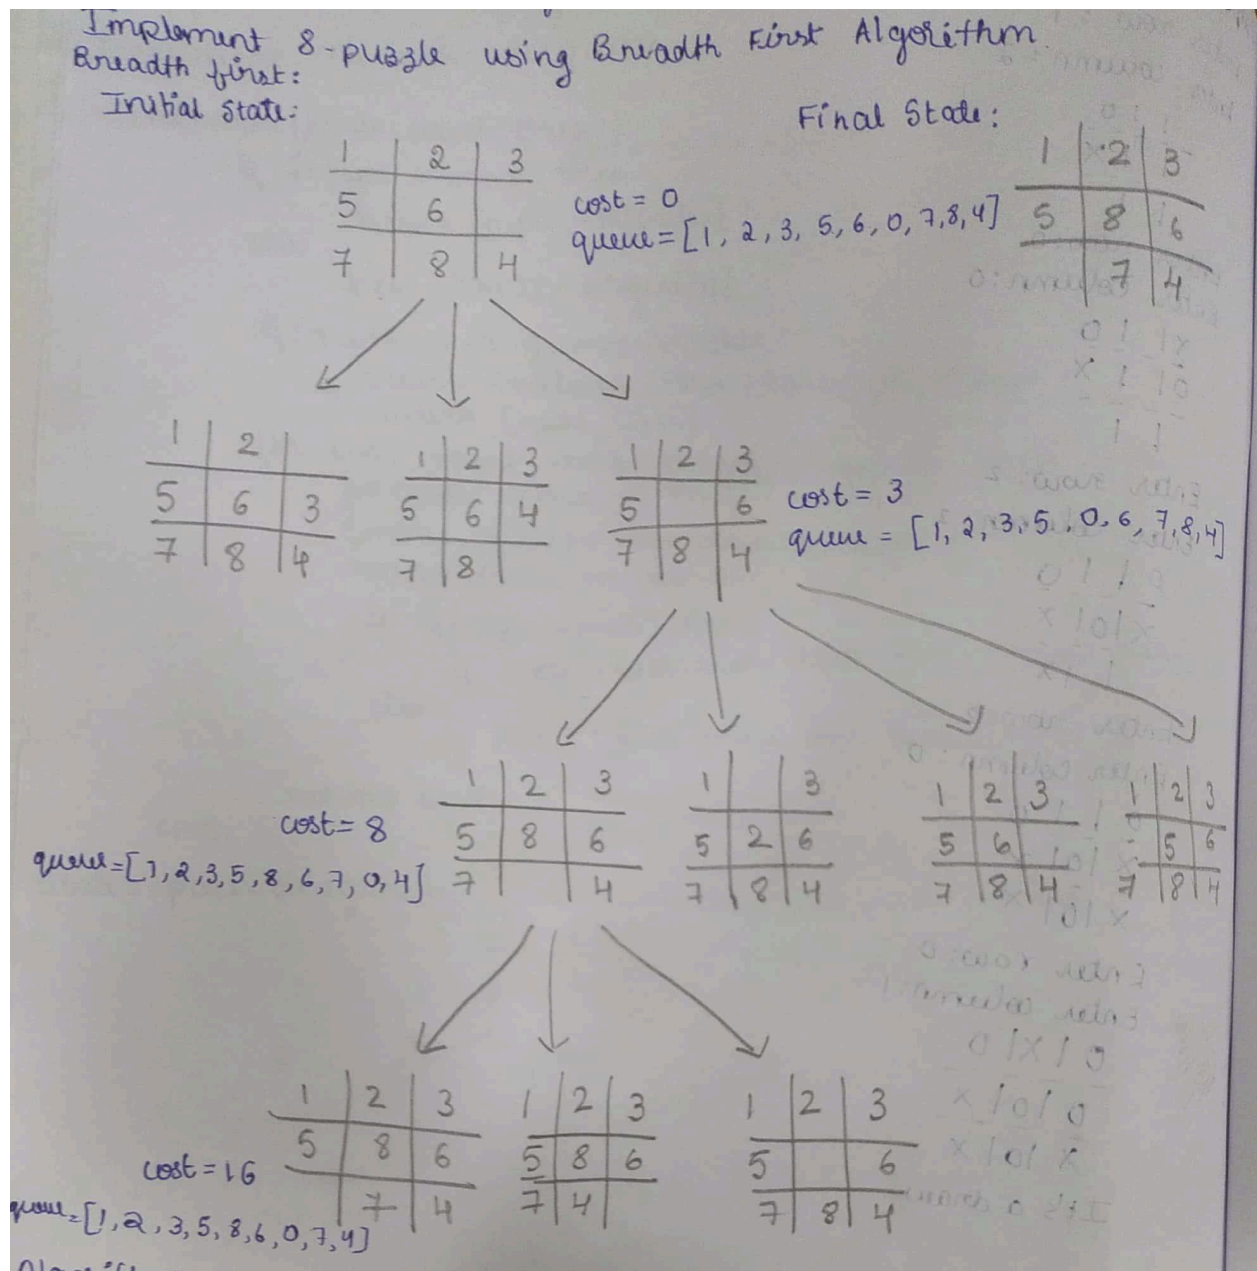 Implement 8-puzzle using Breadth First Algorithm
Breadth first:
Initial State:
Final State:
1 2 3
5 6
7 8 4
cost = 0
queue = [1, 2, 3, 5, 6, 0, 7, 8, 4]
1 2 3
5 8 6
7 4
1 2
5 6 3
7 8 4
1 2 3
5 6 4
7 8
1 2 3
5 6
7 8 4
cost = 3
queue = [1, 2, 3, 5, 0, 6, 7, 8, 4]
cost = 8
queue = [1, 2, 3, 5, 8, 6, 7, 0, 4]
1 2 3
5 8 6
7 4
1 3
5 2 6
7 8 4
1 2 3
5 6
7 8 4
1 2 3
5 6
7 8 4
cost = 16
queue = [1, 2, 3, 5, 8, 6, 0, 7, 4]
1 2 3
5 8 6
7 4
1 2 3
5 8 6
7 4
1 2 3
5 6
7 8 4